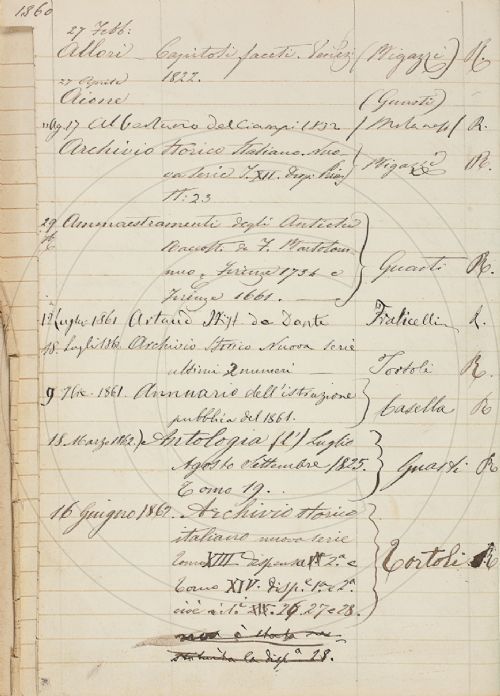 1860
27 Febb:
Allori – Capitoli faceti. Venez. (Bigazzi) R.
27 Aprile 1822.
Aione (Guasti)
Ag. 17 Albertino del Ciampi 1832 (Milanesi) R.
Archivio Storico Italiano. Nuo-
va serie T. XII. disp. Bigazzi R.
N: 23
29 Ammaestramenti degli Antichi
Raccolti da F. Bartolom-
meo, Firenze 1734 e Guasti R.
Firenze 1661.
Luglio 1861 Artaud Hist. de Dante Fraticelli R.
18 Luglio 1861 Archivio Storico Nuova serie
ultimi 2 numeri — Tortoli R.
9 7bre 1861. Annuario dell'istruzione
pubblica del 1861. Casella R
18 Marzo 1862. Antologia (L') Luglio
Agosto Settembre 1825. Guasti R
Tomo 19.
16 Giugno 1862. Archivio storico
italiano nuova serie
tomo XIII dispensa 2.a e Tortoli R
tomo XIV. disp.e 1.a e 2.a
cioè 26, 27 e 28.
non è stata
la disp.a 28.